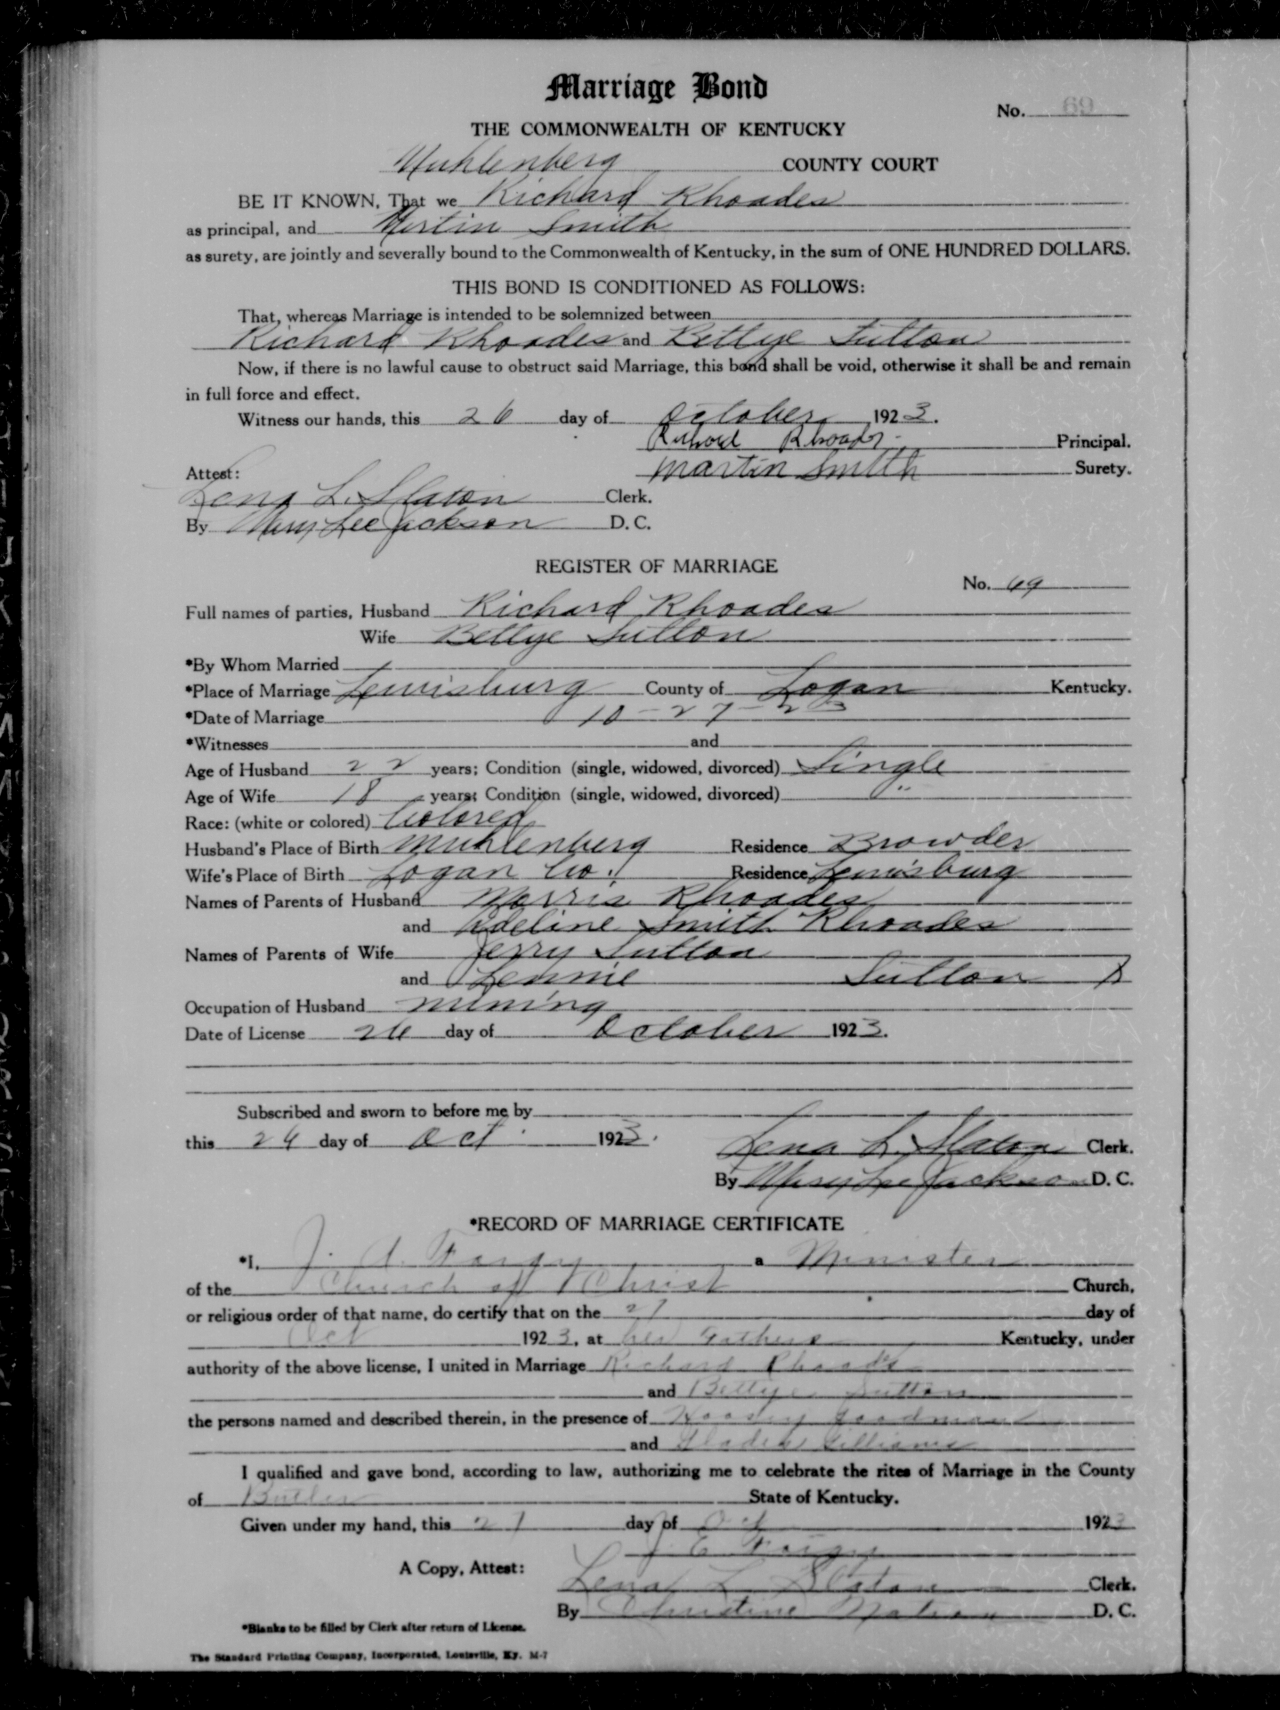 Marriage Bond
No. 69
THE COMMONWEALTH OF KENTUCKY
Muhlenberg COUNTY COURT
BE IT KNOWN, That we Richard Rhoades
as principal, and Martin Smith
as surety, are jointly and severally bound to the Commonwealth of Kentucky, in the sum of ONE HUNDRED DOLLARS.
THIS BOND IS CONDITIONED AS FOLLOWS:
That, whereas Marriage is intended to be solemnized between
Richard Rhoades and Bettye Sutton
Now, if there is no lawful cause to obstruct said Marriage, this bond shall be void, otherwise it shall be and remain
in full force and effect.
Witness our hands, this 26 day of October 1923.
Richard Rhoades Principal.
Attest: Martin Smith Surety.
Lena L. Slaton Clerk.
By Mary Lee Jackson D. C.
REGISTER OF MARRIAGE
No. 69
Full names of parties, Husband Richard Rhoades
Wife Bettye Sutton
*By Whom Married
*Place of Marriage Lewisburg County of Logan Kentucky.
*Date of Marriage 10-27-23
*Witnesses and
Age of Husband 22 years; Condition (single, widowed, divorced) Single
Age of Wife 18 years; Condition (single, widowed, divorced) "
Race: (white or colored) Colored
Husband's Place of Birth Muhlenburg Residence Browder
Wife's Place of Birth Logan Co. Residence Lewisburg
Names of Parents of Husband Morris Rhoades
and Adeline Smith Rhoades
Names of Parents of Wife Jerry Sutton
and Lennie Sutton
Occupation of Husband mining
Date of License 26 day of October 1923.
Subscribed and sworn to before me by
this 26 day of Oct. 1923.
Lena L. Slaton Clerk.
By Mary Lee Jackson D. C.
*RECORD OF MARRIAGE CERTIFICATE
*I, J. A. a Minister
of the Church of Christ Church,
or religious order of that name, do certify that on the 27 day of
Oct 1923, at her Fathers Kentucky, under
authority of the above license, I united in Marriage Richard Rhoades
and Bettye Sutton
the persons named and described therein, in the presence of Goodman
and Williams
I qualified and gave bond, according to law, authorizing me to celebrate the rites of Marriage in the County
of Butler State of Kentucky.
Given under my hand, this 27 day of Oct 1923
J. E.
A Copy, Attest: Lena L. Slaton Clerk.
By Christine D. C.
*Blanks to be filled by Clerk after return of License.
The Standard Printing Company, Incorporated, Louisville, Ky. M-7